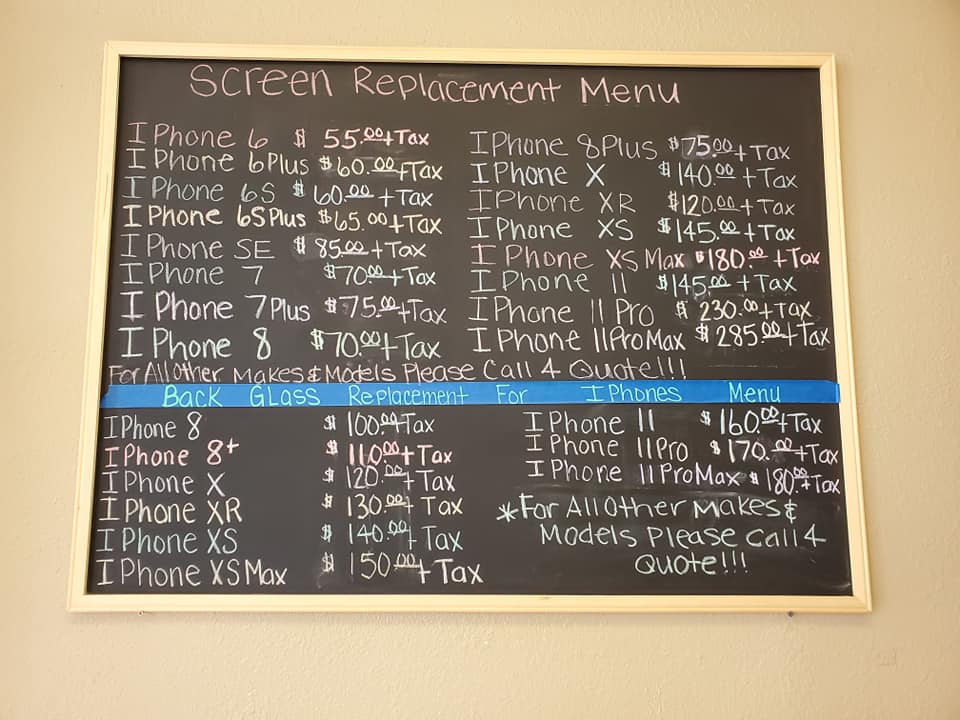 Screen Replacement Menu
I Phone 6 $ 55.00+Tax
I Phone 6Plus $60.00+Tax
I Phone 6S $ 60.00 +Tax
I Phone 6SPlus $65.00+Tax
I Phone SE $ 85.00+Tax
I Phone 7 $70.00+Tax
I Phone 7Plus $75.00+Tax
I Phone 8 $70.00+Tax
I Phone 8Plus $75.00+Tax
I Phone X $140.00 +Tax
I Phone XR $120.00+Tax
I Phone XS $145.00+Tax
I Phone XS Max $180.00 +Tax
I Phone 11 $145.00 +Tax
I Phone 11 Pro $ 230.00+Tax
I Phone 11ProMax $285.00+Tax
For All Other Makes & Models Please Call 4 Quote!!!
Back Glass Replacement For I Phones Menu
I Phone 8 $ 100.00+Tax
I Phone 8+ $ 110.00+Tax
I Phone X $ 120.00+Tax
I Phone XR $ 130.00+ Tax
I Phone XS $ 140.00+ Tax
I Phone XS Max $ 150.00+Tax
I Phone 11 $160.00+Tax
I Phone 11Pro $170.00+Tax
I Phone 11ProMax $180.00+Tax
*For All Other Makes &
Models Please Call 4
Quote!!!